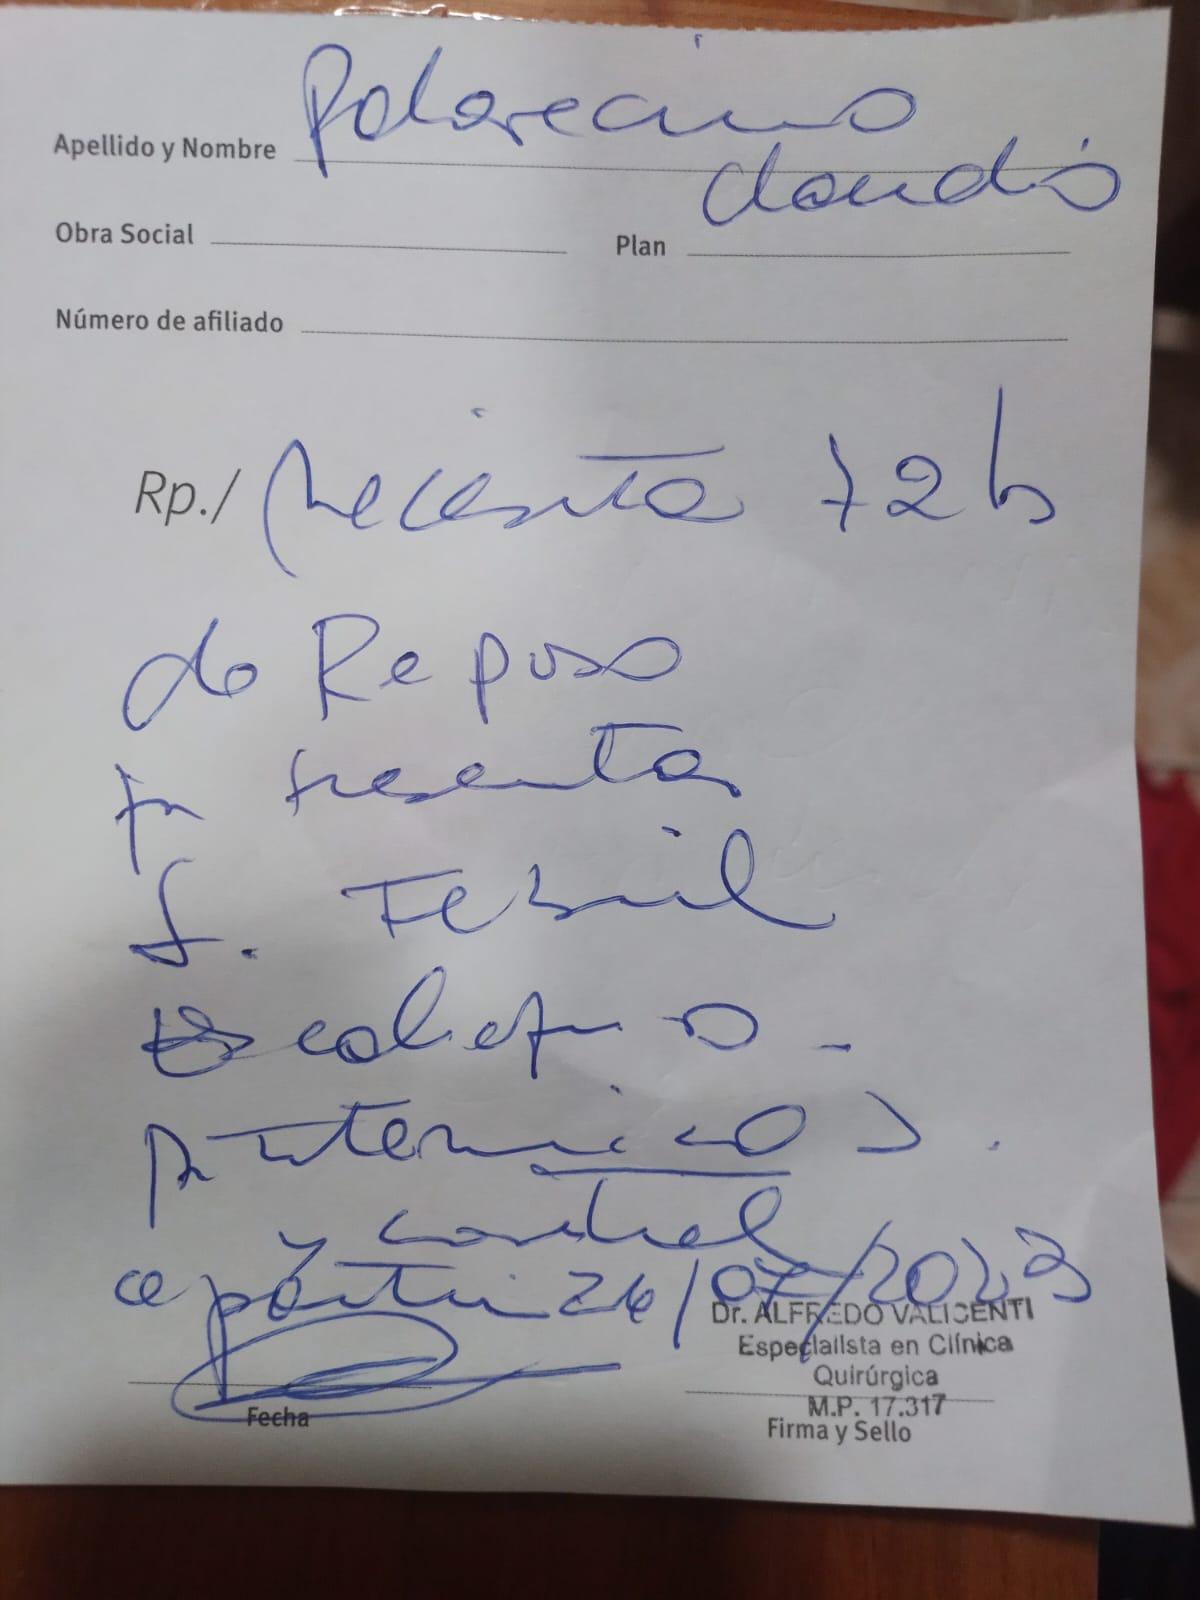 Apellido y Nombre Palavecino
Claudio
Obra Social Plan
Número de afiliado
Rp./ Necesita 72 hs
de Reposo
presenta
S. Febril
escalofrio -
y control
a partir 24/07/2023
Dr. ALFREDO VALICENTI
Especialista en Clínica
Quirúrgica
M.P. 17.317
Fecha Firma y Sello